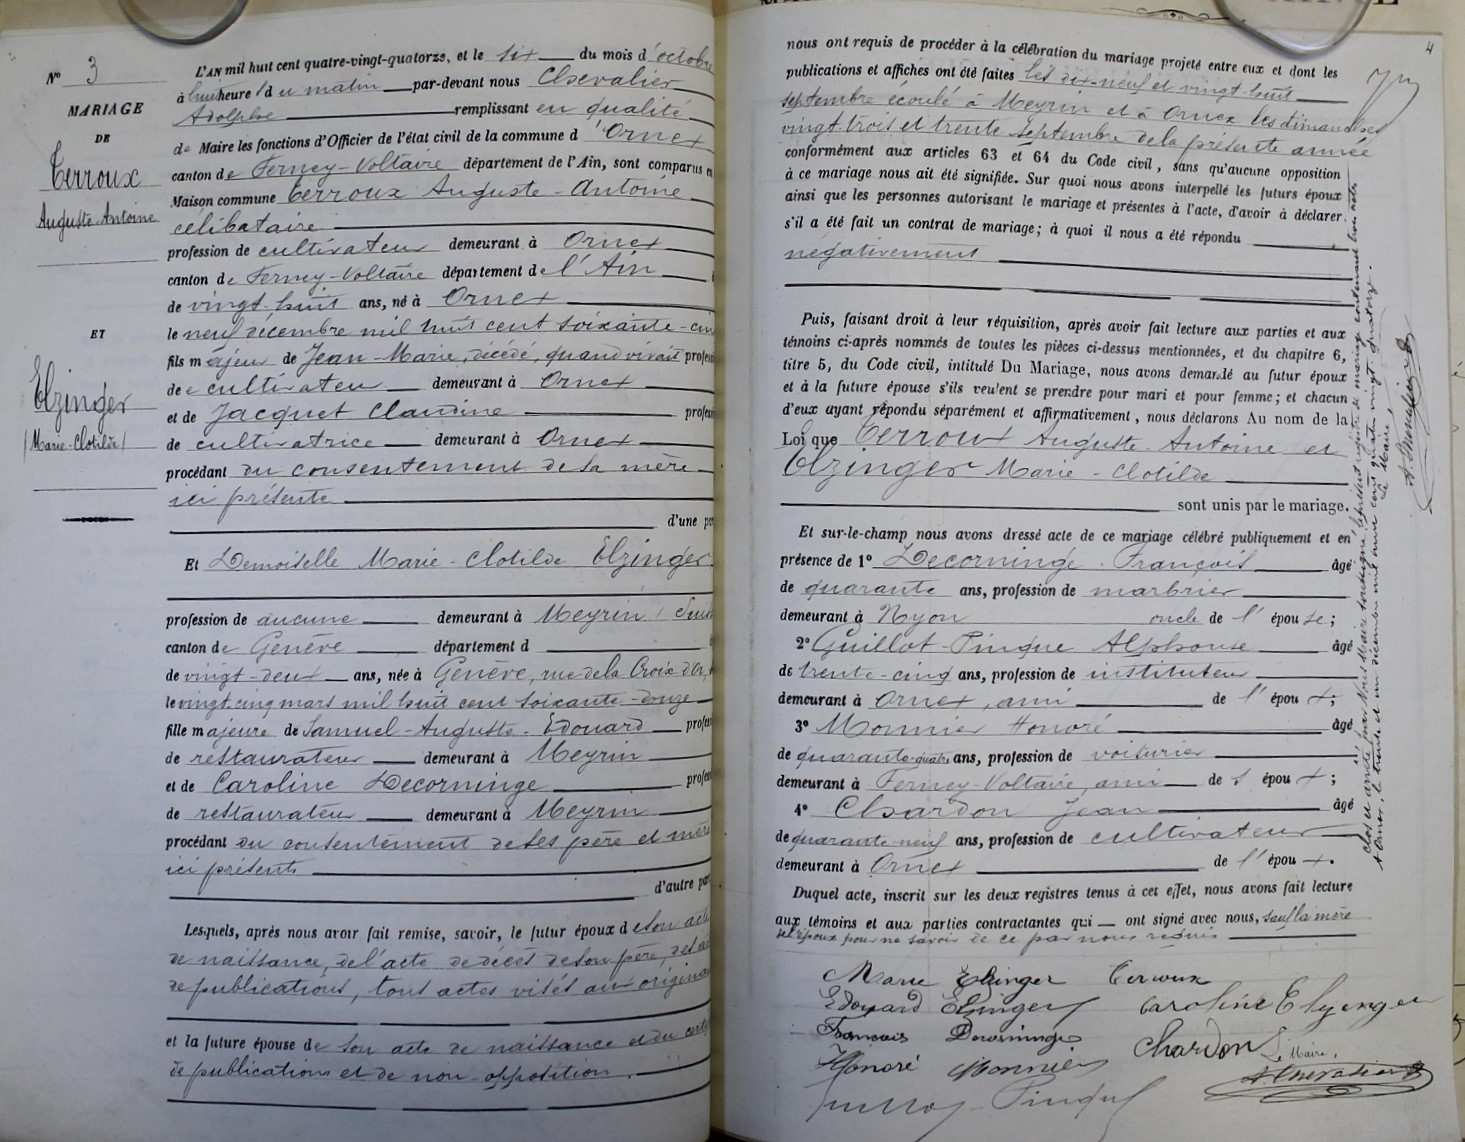 N° 3
MARIAGE
DE
Terroux
Auguste-Antoine
ET
Elzinger
(Marie-Clotilde)
L'AN mil huit cent quatre-vingt-quatorze, et le six du mois d'octobre
à huit heures du matin par-devant nous Chevalier
Adolphe remplissant en qualité
de Maire les fonctions d'Officier de l'état civil de la commune d'Ornex
canton de Ferney-Voltaire département de l'Ain, sont comparus en
Maison commune Terroux Auguste-Antoine
célibataire
profession de cultivateur demeurant à Ornex
canton de Ferney-Voltaire département de l'Ain
de vingt-huit ans, né à Ornex
le neuf décembre mil huit cent soixante-cin
fils majeur de Jean-Marie, décédé, quand vivait profes
de cultivateur demeurant à Ornex
et de Jacquet Claudine profes
de cultivatrice demeurant à Ornex
procédant du consentement de sa mère
ici présente
d'une par
Et Demoiselle Marie-Clotilde Elzinger
profession de aucune demeurant à Meyrin (Suis
canton de Genève département d
de vingt-deux ans, née à Genève, rue de la Croix d'Or,
le vingt cinq mars mil huit cent soixante-douze
fille majeure de Samuel-Auguste-Edouard profes
de restaurateur demeurant à Meyrin
et de Caroline Decorninge profes
de restaurateur demeurant à Meyrin
procédant du consentement de ses père et mère
ici présents
d'autre par
Lesquels, après nous avoir fait remise, savoir, le futur époux de son acte
de naissance, de l'acte de décès de son père,
de publications, tous actes visés aux originaux
et la future épouse de son acte de naissance et du certi
de publications et de non-opposition.
4
nous ont requis de procéder à la célébration du mariage projeté entre eux et dont les
publications et affiches ont été faites les dix-neuf et vingt-huit
septembre écoulé à Meyrin et à Ornex les dimanches
vingt-trois et trente septembre de la présente année
conformément aux articles 63 et 64 du Code civil, sans qu'aucune opposition
à ce mariage nous ait été signifiée. Sur quoi nous avons interpellé les futurs époux
ainsi que les personnes autorisant le mariage et présentes à l'acte, d'avoir à déclarer
s'il a été fait un contrat de mariage; à quoi il nous a été répondu
négativement
Puis, faisant droit à leur réquisition, après avoir fait lecture aux parties et aux
témoins ci-après nommés de toutes les pièces ci-dessus mentionnées, et du chapitre 6,
titre 5, du Code civil, intitulé Du Mariage, nous avons demandé au futur époux
et à la future épouse s'ils veulent se prendre pour mari et pour femme; et chacun
d'eux ayant répondu séparément et affirmativement, nous déclarons Au nom de la
Loi que Terroux Auguste-Antoine et
Elzinger Marie-Clotilde
sont unis par le mariage.
Et sur-le-champ nous avons dressé acte de ce mariage célébré publiquement et en
présence de 1° Decorninge François âgé
de quarante ans, profession de marbrier
demeurant à Nyon oncle de l'épouse;
2° Guillot-Pingue Alphonse âgé
de trente-cinq ans, profession de instituteur
demeurant à Ornex, ami de l'époux;
3° Monnier Honoré âgé
de quarante-quatre ans, profession de voiturier
demeurant à Ferney-Voltaire, ami de l'époux;
4° Chardon Jean âgé
de quarante-neuf ans, profession de cultivateur
demeurant à Ornex de l'époux.
Duquel acte, inscrit sur les deux registres tenus à cet effet, nous avons fait lecture
aux témoins et aux parties contractantes qui ont signé avec nous, sauf la mère
de l'époux pour ne savoir de ce par nous requis
Marie Elzinger Terroux
Edouard Elzinger Caroline Elzinger
François Decorninge Chardon Le Maire,
Honoré Monnier A. Chevalier
Guillot-Pingue
Clos et arrêté par Nous Maire soussigné le présent registre de mariage contenant trois actes
A Ornex, le trente et un décembre mil huit cent quatre-vingt-quatorze.
Le Maire
A. Chevalier